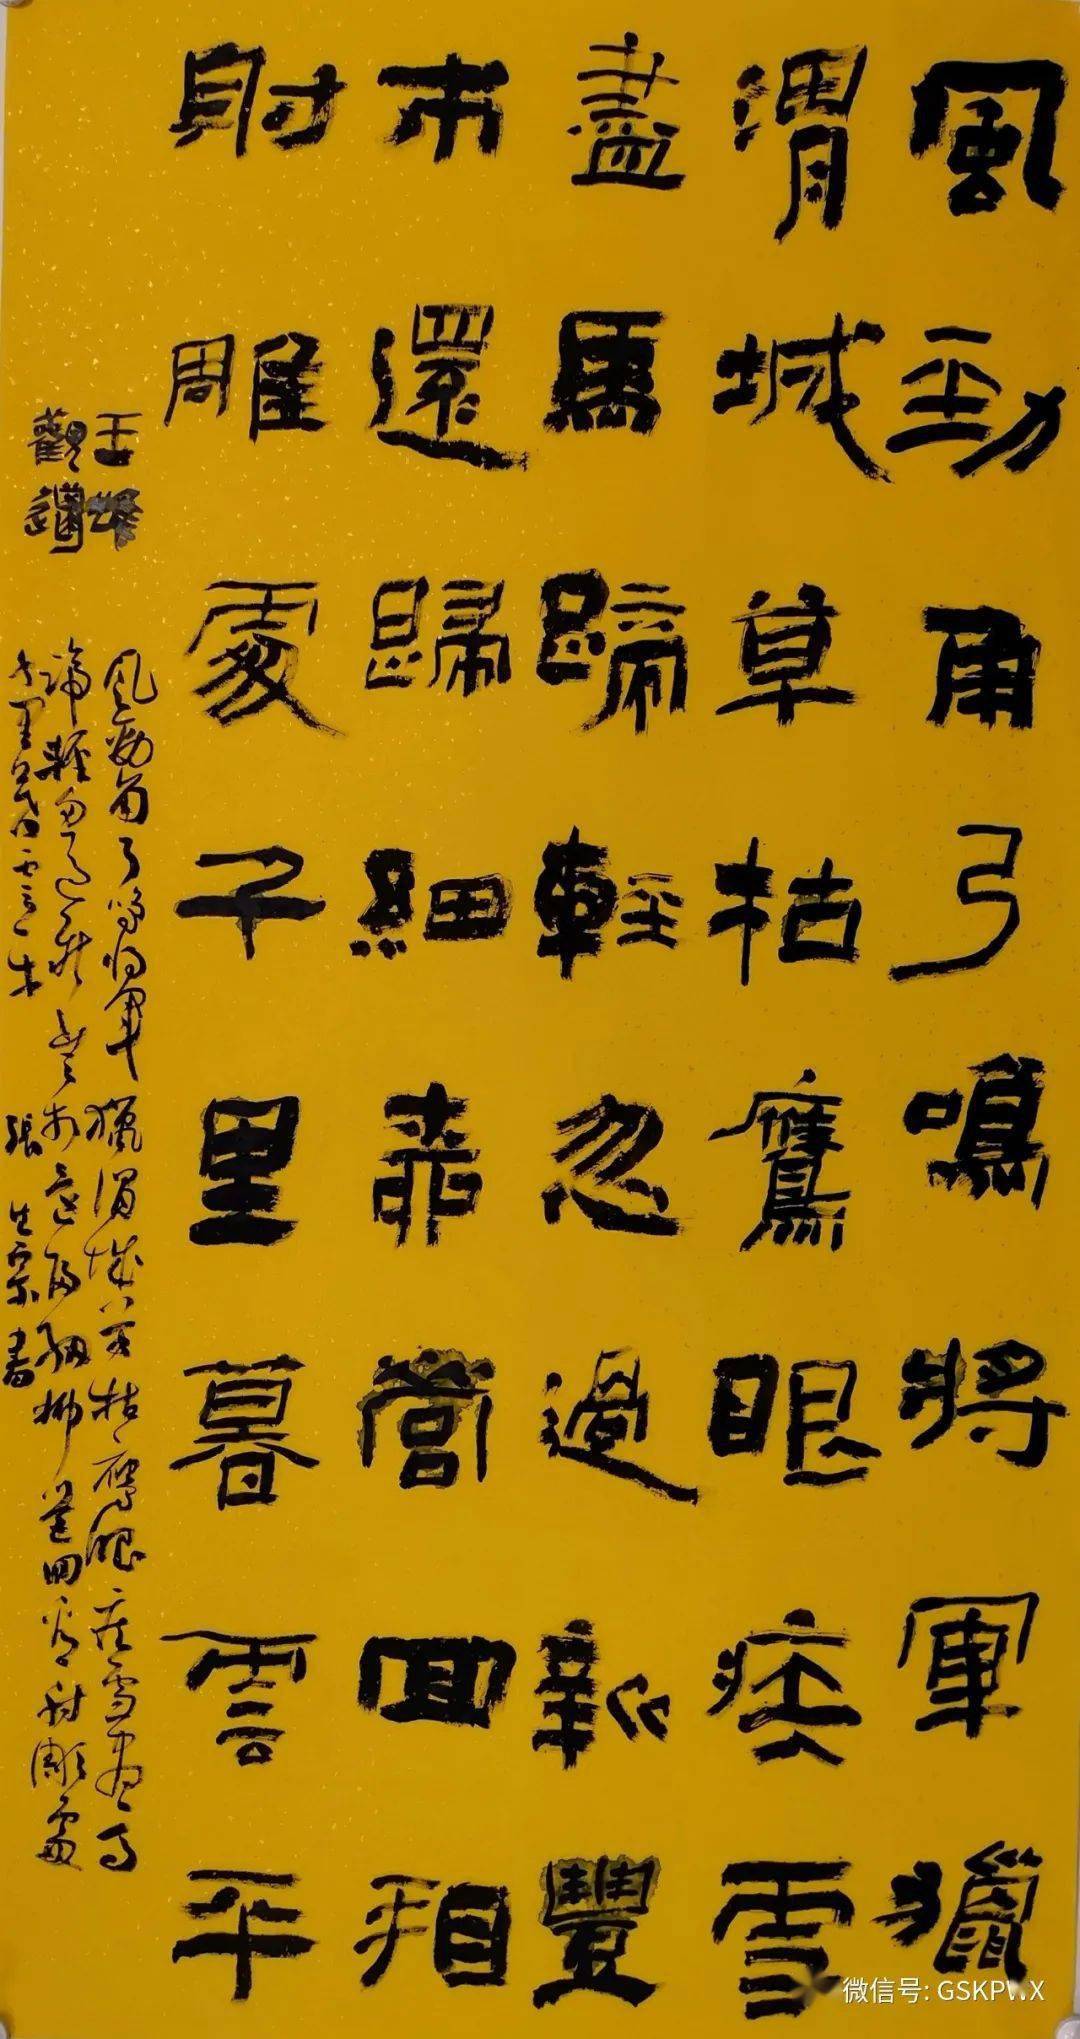 風勁角弓鳴將軍獵
渭城草枯鷹眼疾雪
盡馬蹄輕忽過新豐
市還歸細柳營回看
射雕處千里暮雲平
王維
觀獵
風勁角弓鳴將軍獵渭城草枯鷹眼疾雪盡馬
蹄輕忽過新豐市還歸細柳營回看射雕處
千里暮雲平 張生書
微信号: GSKPWX